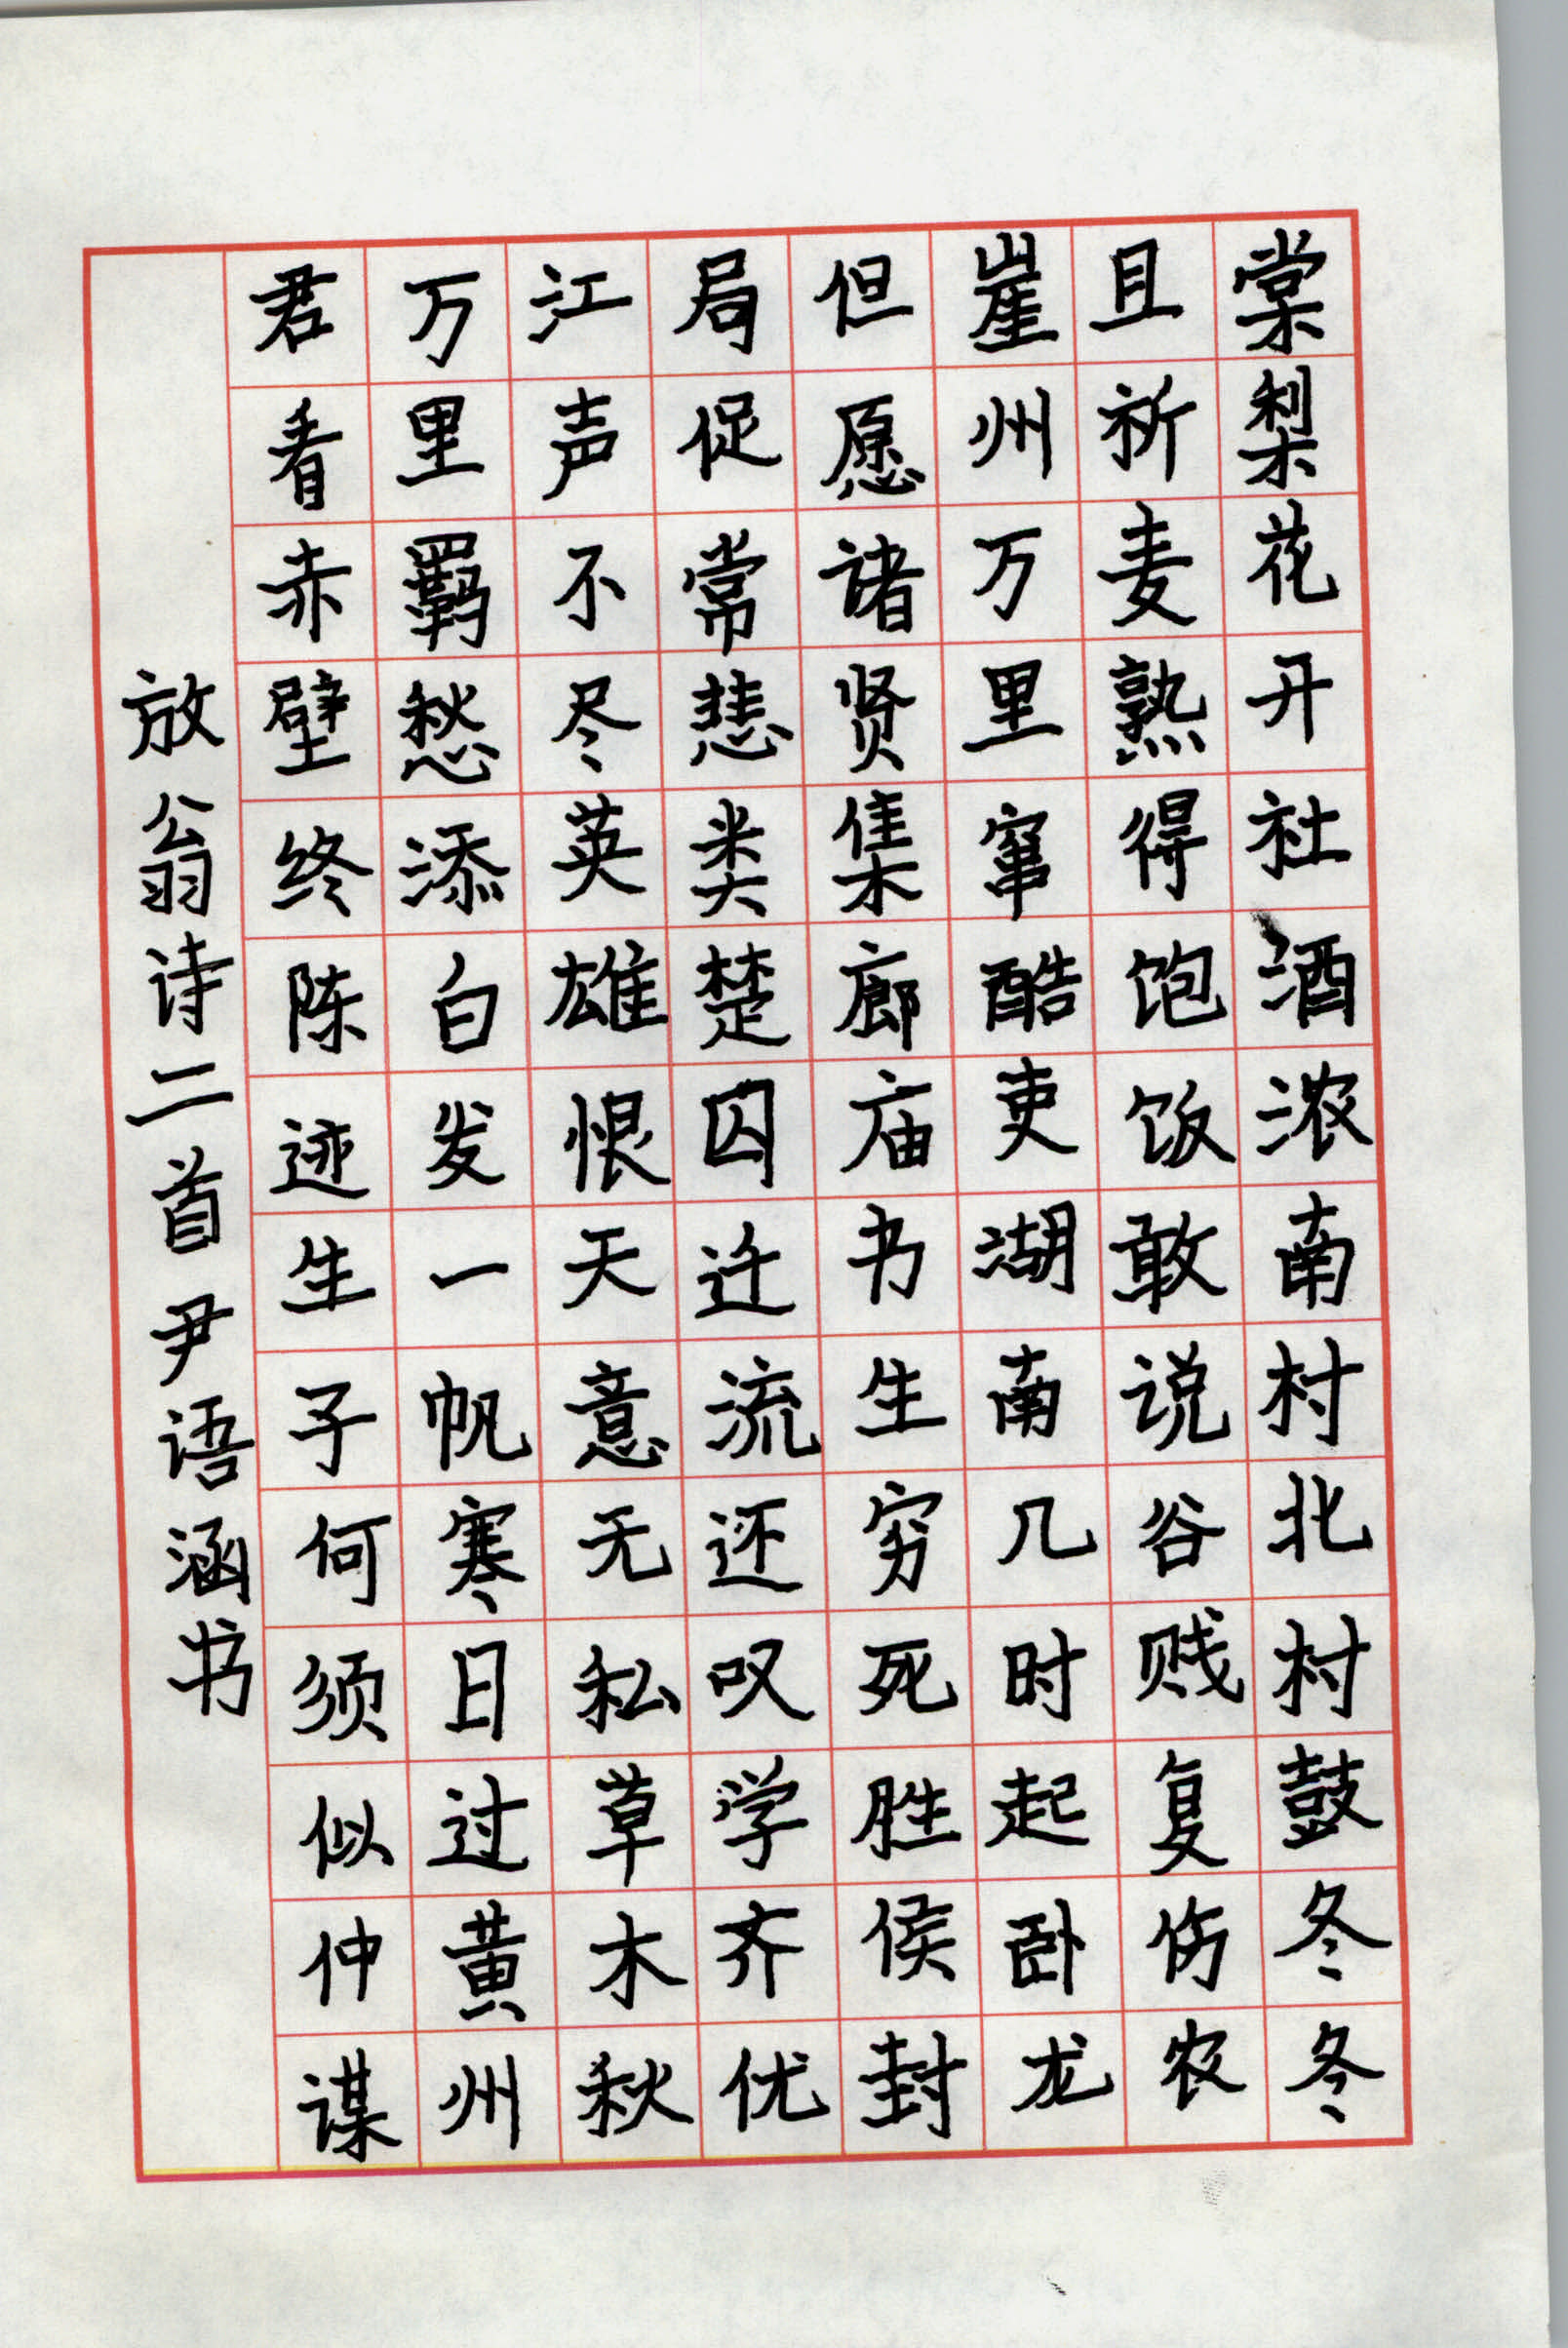 棠梨花开社酒浓南村北村鼓冬冬
且祈麦熟得饱饭敢说谷贱复伤农
崖州万里窜酷吏湖南几时起卧龙
但愿诸贤集廊庙书生穷死胜侯封
局促常悲类楚囚迁流还叹学齐优
江声不尽英雄恨天意无私草木秋
万里羁愁添白发一帆寒日过黄州
君看赤壁终陈迹生子何须似仲谋
放翁诗二首尹语涵书